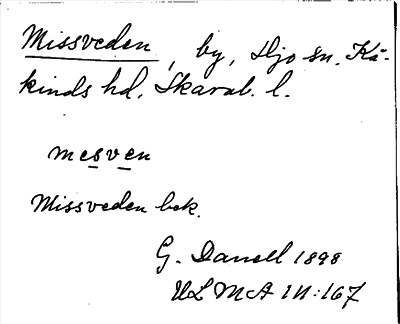 Missveden, by, Hjo sn. Kå-
kinds hd. Skarab. l.
mesven
Missveden bek.
G. Danell 1898
ULMA 111:167